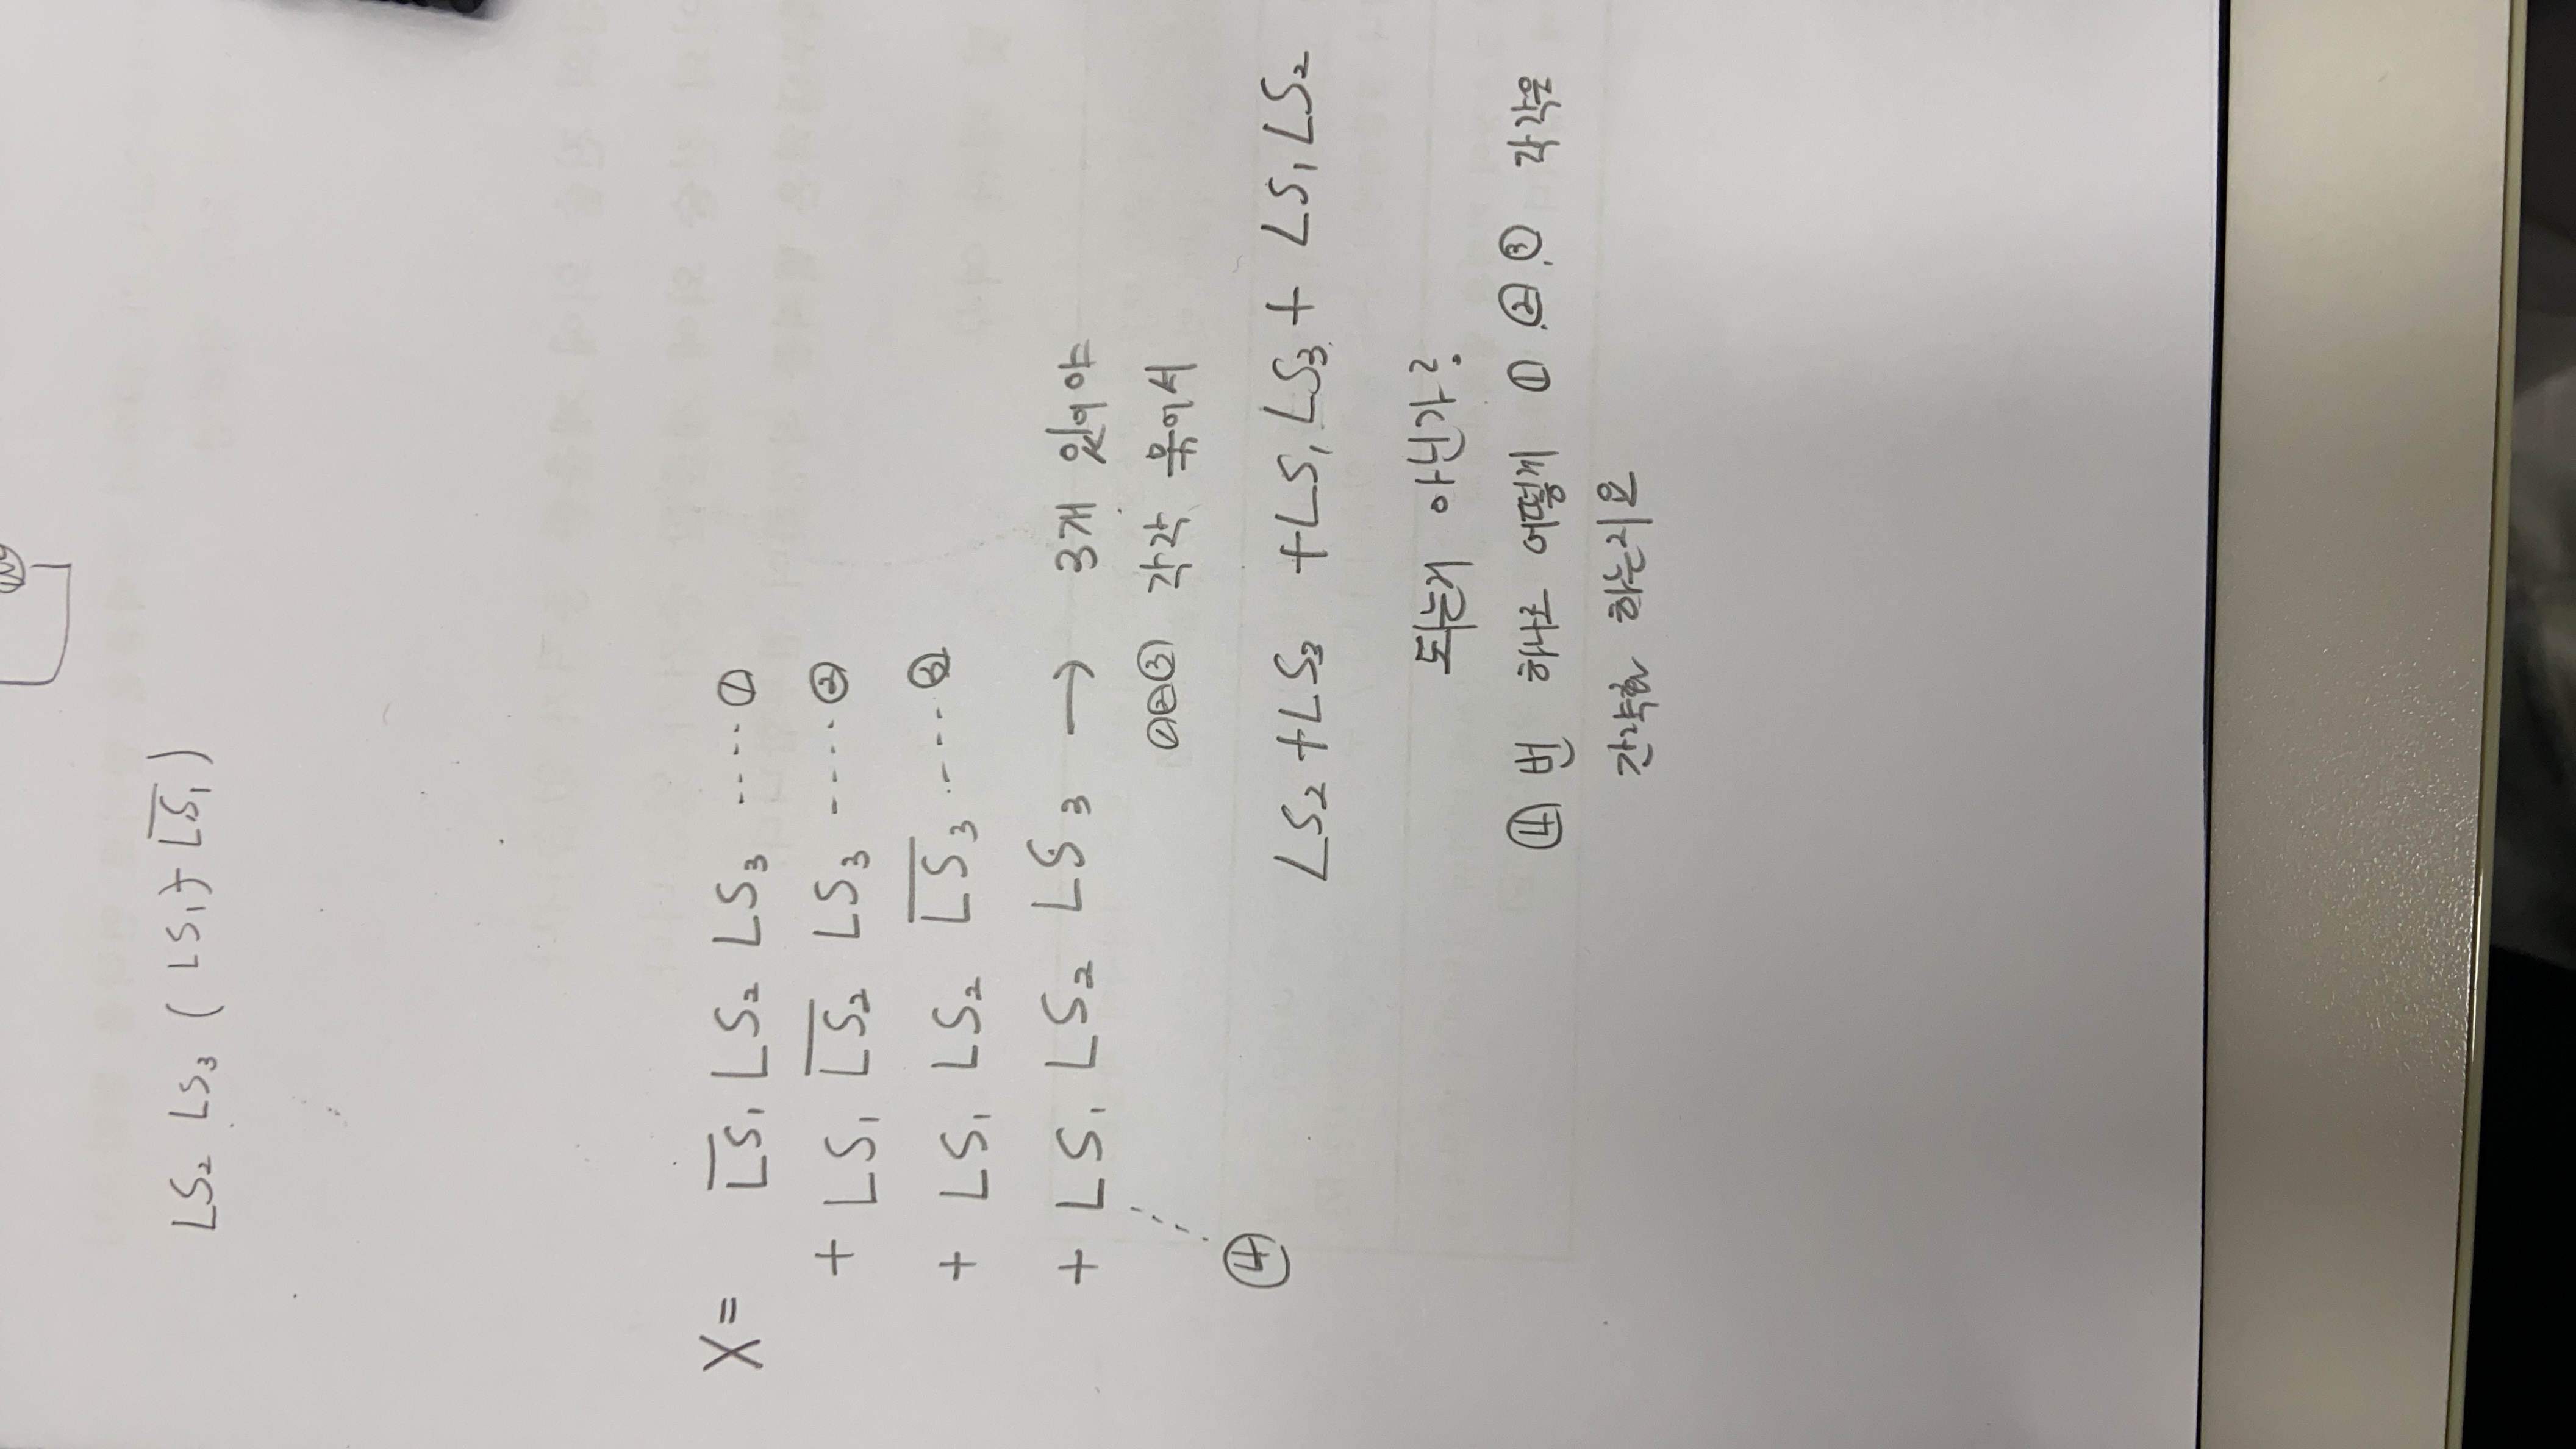 LS₂ LS₃ ( LS₁+ L̅S̅₁)
X= L̅S̅₁ LS₂ LS₃ ····①
+ LS₁ L̅S̅₂ LS₃ ----②
+ LS₁ LS₂ L̅S̅₃ ----③
+ LS₁ LS₂ LS₃ → 3개 있어야
④
①②③ 각각 묶어서
LS₂+LS₃ +LS₁LS₃+ LS₁LS₂
되는거 아닌가?
④ 번 하나로 어떻게 ① ② ③ 각각을
간략화 하는지요